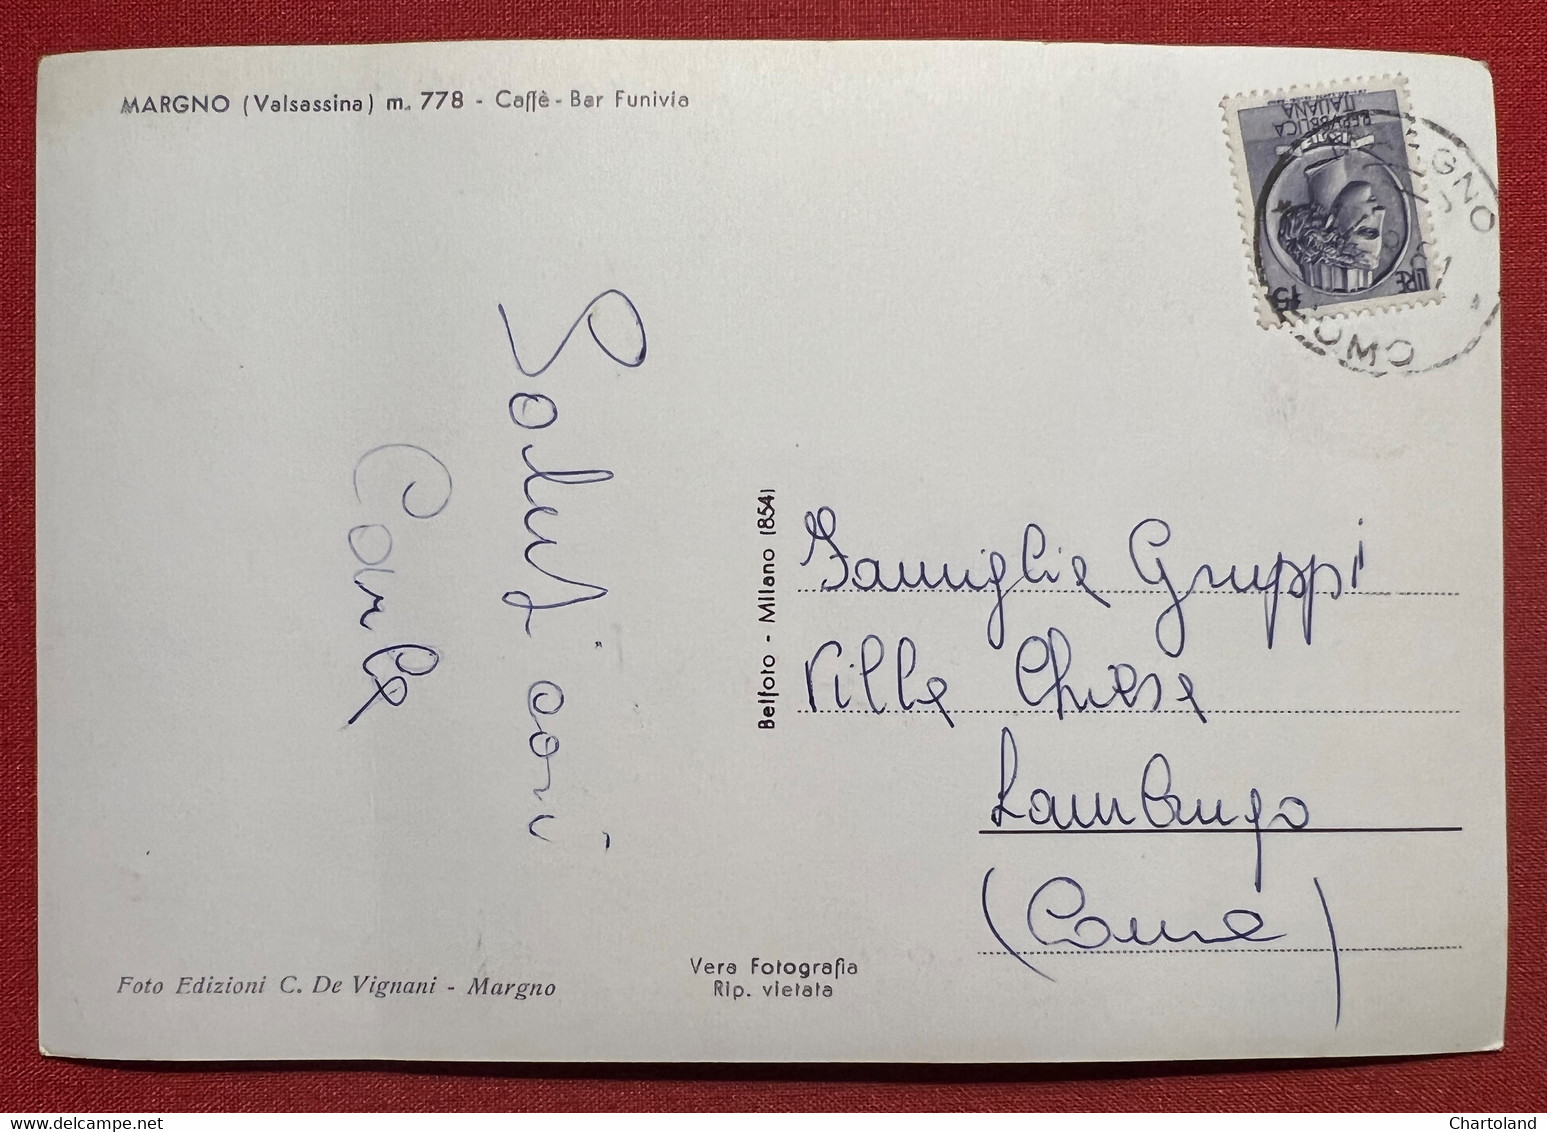 MARGNO (Valsassina) m. 778 - Caffè - Bar Funivia
REPVBBLICA
ITALIANA
LIRE 15
COMO
Saluti cari
Carla
Belfoto - Milano (854)
Famiglia Gruppi
Villa Chiesa
Lambrugo
(Como)
Vera Fotografia
Rip. vietata
Foto Edizioni C. De Vignani - Margno
Chartoland